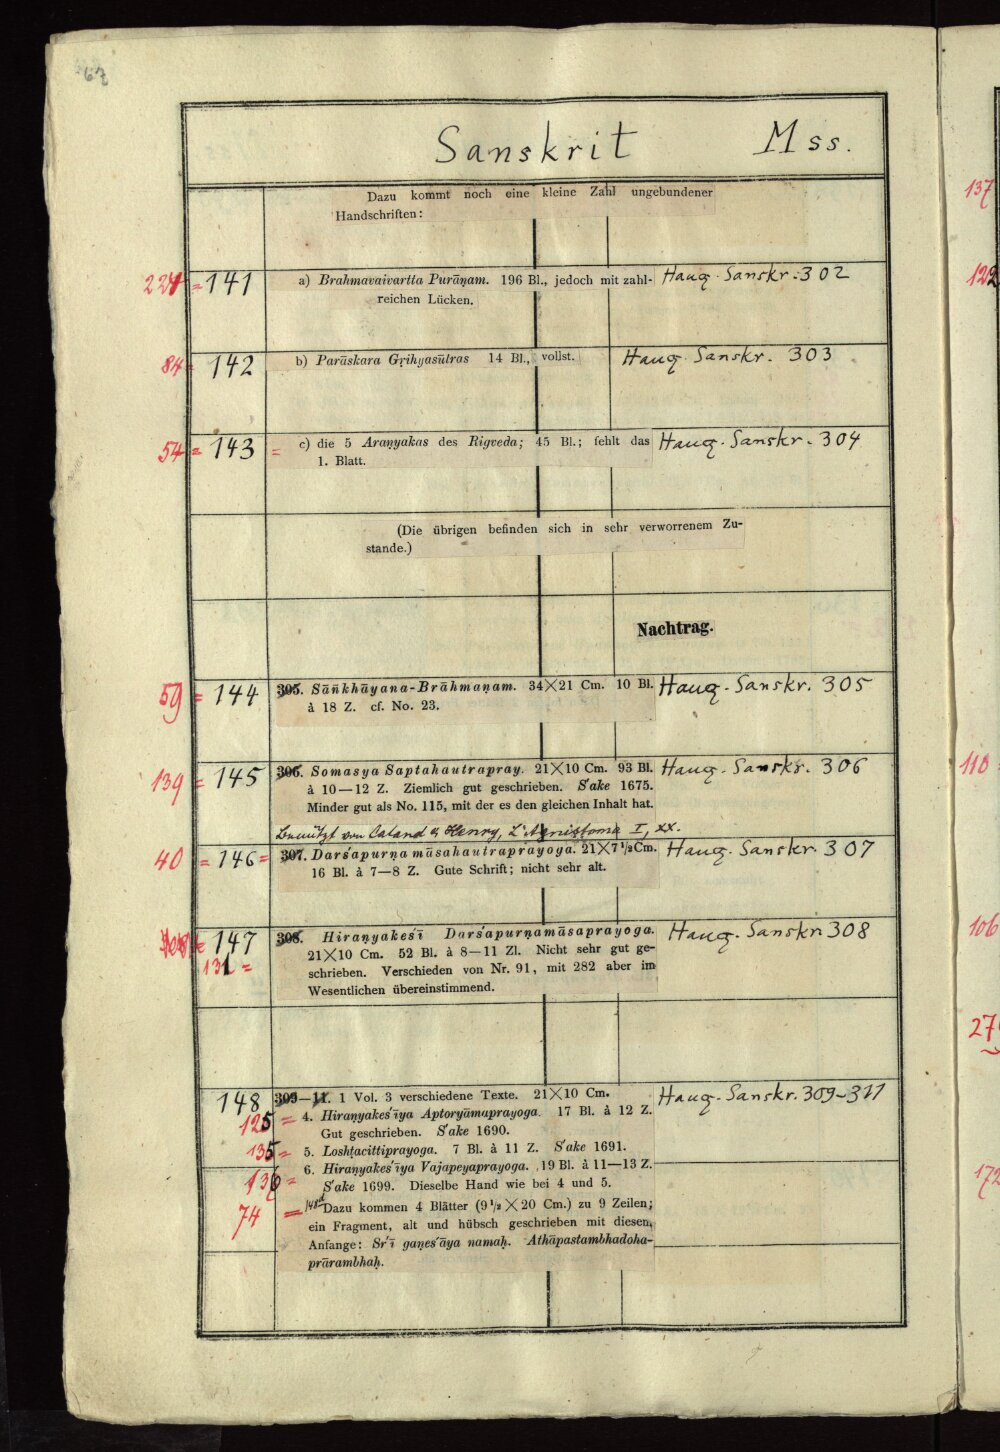 67
Sanskrit Mss.
Dazu kommt noch eine kleine Zahl ungebundener
Handschriften:
= 141 a) Brahmavaivartta Purāṇam. 196 Bl., jedoch mit zahl- Haug. Sanskr. 302
reichen Lücken.
84 = 142 b) Parāskara Gṛihyasūtras 14 Bl., vollst. Haug. Sanskr. 303
54 = 143 = c) die 5 Araṇyakas des Rigveda; 45 Bl.; fehlt das Haug. Sanskr. 304
1. Blatt.
(Die übrigen befinden sich in sehr verworrenem Zu-
stande.)
Nachtrag.
59 = 144 305. Sāñkhāyana-Brāhmaṇam. 34×21 Cm. 10 Bl. Haug. Sanskr. 305
à 18 Z. cf. No. 23.
139 = 145 306. Somasya Saptahautrapray. 21×10 Cm. 93 Bl. Haug. Sanskr. 306
à 10—12 Z. Ziemlich gut geschrieben. S'ake 1675.
Minder gut als No. 115, mit der es den gleichen Inhalt hat.
Benützt von Caland & Henry, L'Agnistoma I, XX.
40 = 146 = 307. Dars'apurṇamāsahautraprayoga. 21×7 1/2 Cm. Haug. Sanskr. 307
16 Bl. à 7—8 Z. Gute Schrift; nicht sehr alt.
= 147 308. Hiraṇyakes'ī Dars'apurṇamāsaprayoga. Haug. Sanskr. 308
131 = 21×10 Cm. 52 Bl. à 8—11 Zl. Nicht sehr gut ge-
schrieben. Verschieden von Nr. 91, mit 282 aber im
Wesentlichen übereinstimmend.
148 309—11. 1 Vol. 3 verschiedene Texte. 21×10 Cm. Haug. Sanskr. 309-311
125 = 4. Hiraṇyakes'īya Aptoryāmaprayoga. 17 Bl. à 12 Z.
Gut geschrieben. S'ake 1690.
135 = 5. Loshṭacittiprayoga. 7 Bl. à 11 Z. S'ake 1691.
136 = 6. Hiraṇyakes'īya Vajapeyaprayoga. 19 Bl. à 11—13 Z.
S'ake 1699. Dieselbe Hand wie bei 4 und 5.
74 = 148d Dazu kommen 4 Blätter (9 1/2 × 20 Cm.) zu 9 Zeilen;
ein Fragment, alt und hübsch geschrieben mit diesem
Anfange: Sr'ī gaṇes'āya namaḥ. Athāpastambhadoha-
prārambhaḥ.
137
122
110
106
172